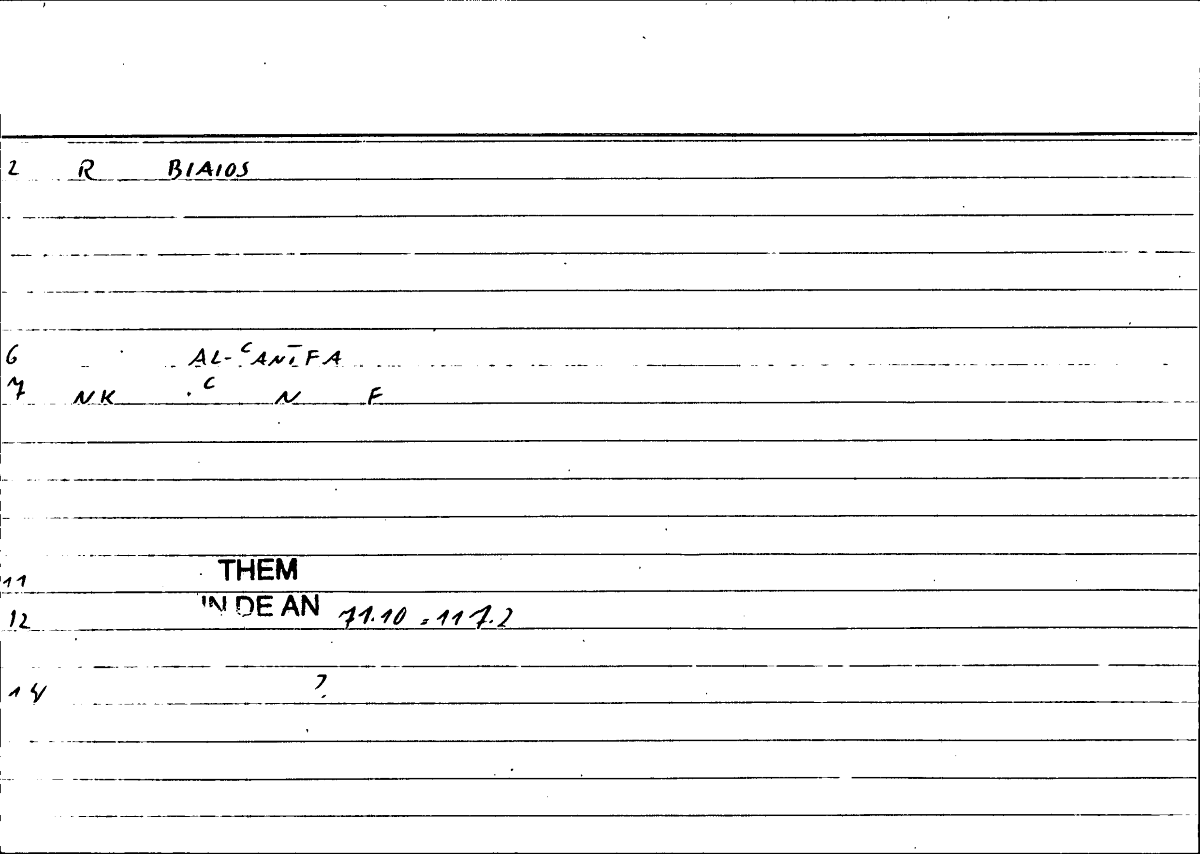 2 R BIAIOS
6 AL-ʿANĪFA
7 NK .ʿ N F
11 THEM
12 IN DE AN 71.10 = 117.2
14 ?